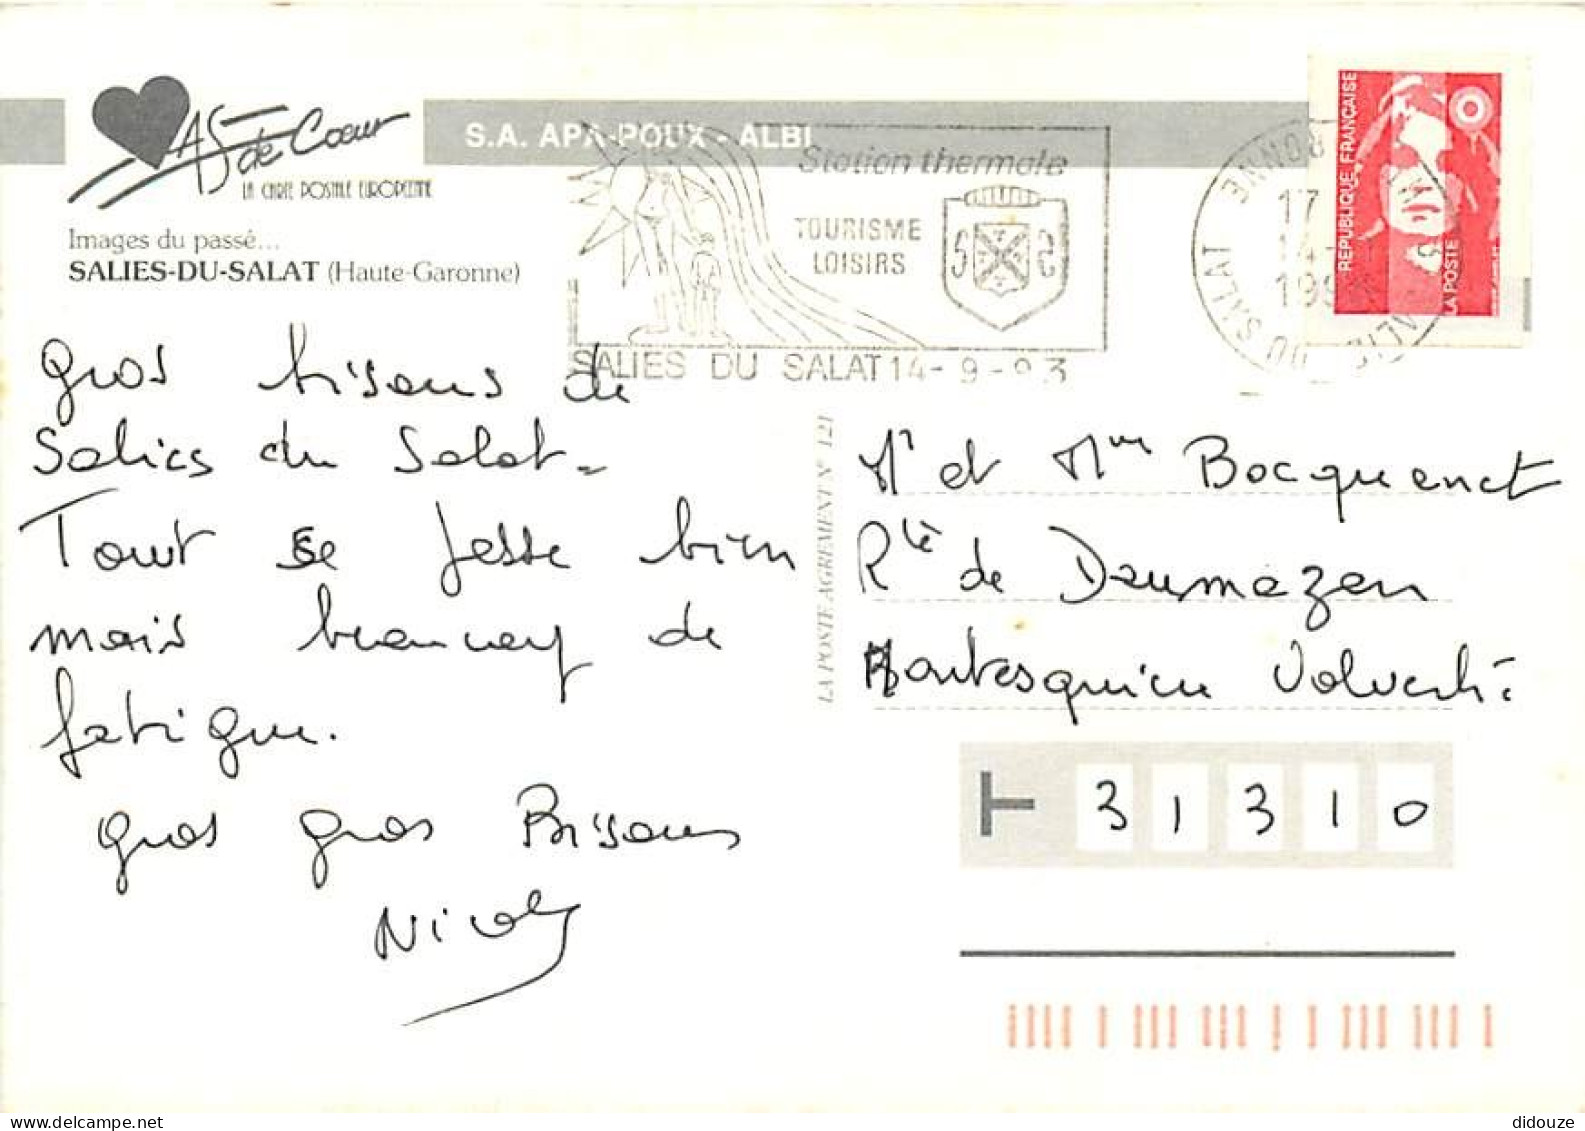 As de Cœur
LA CARTE POSTALE EUROPÉENNE
S.A. APA-POUX - ALBI
Images du passé...
SALIES-DU-SALAT (Haute-Garonne)
Station thermale
TOURISME
LOISIRS
SALIES DU SALAT 14-9-93
17
14-
199
REPUBLIQUE FRANÇAISE
LA POSTE
Gros bisous de
Salies du Salat-
Tout se passe bien
mais beaucoup de
fatigue.
gros gros Bisous
Nicoly
LA POSTE AGREMENT N° 121
Mr et Mme Bocquenet
Rte de Daumazan
Montesquieu Volvestre
31310
didouze